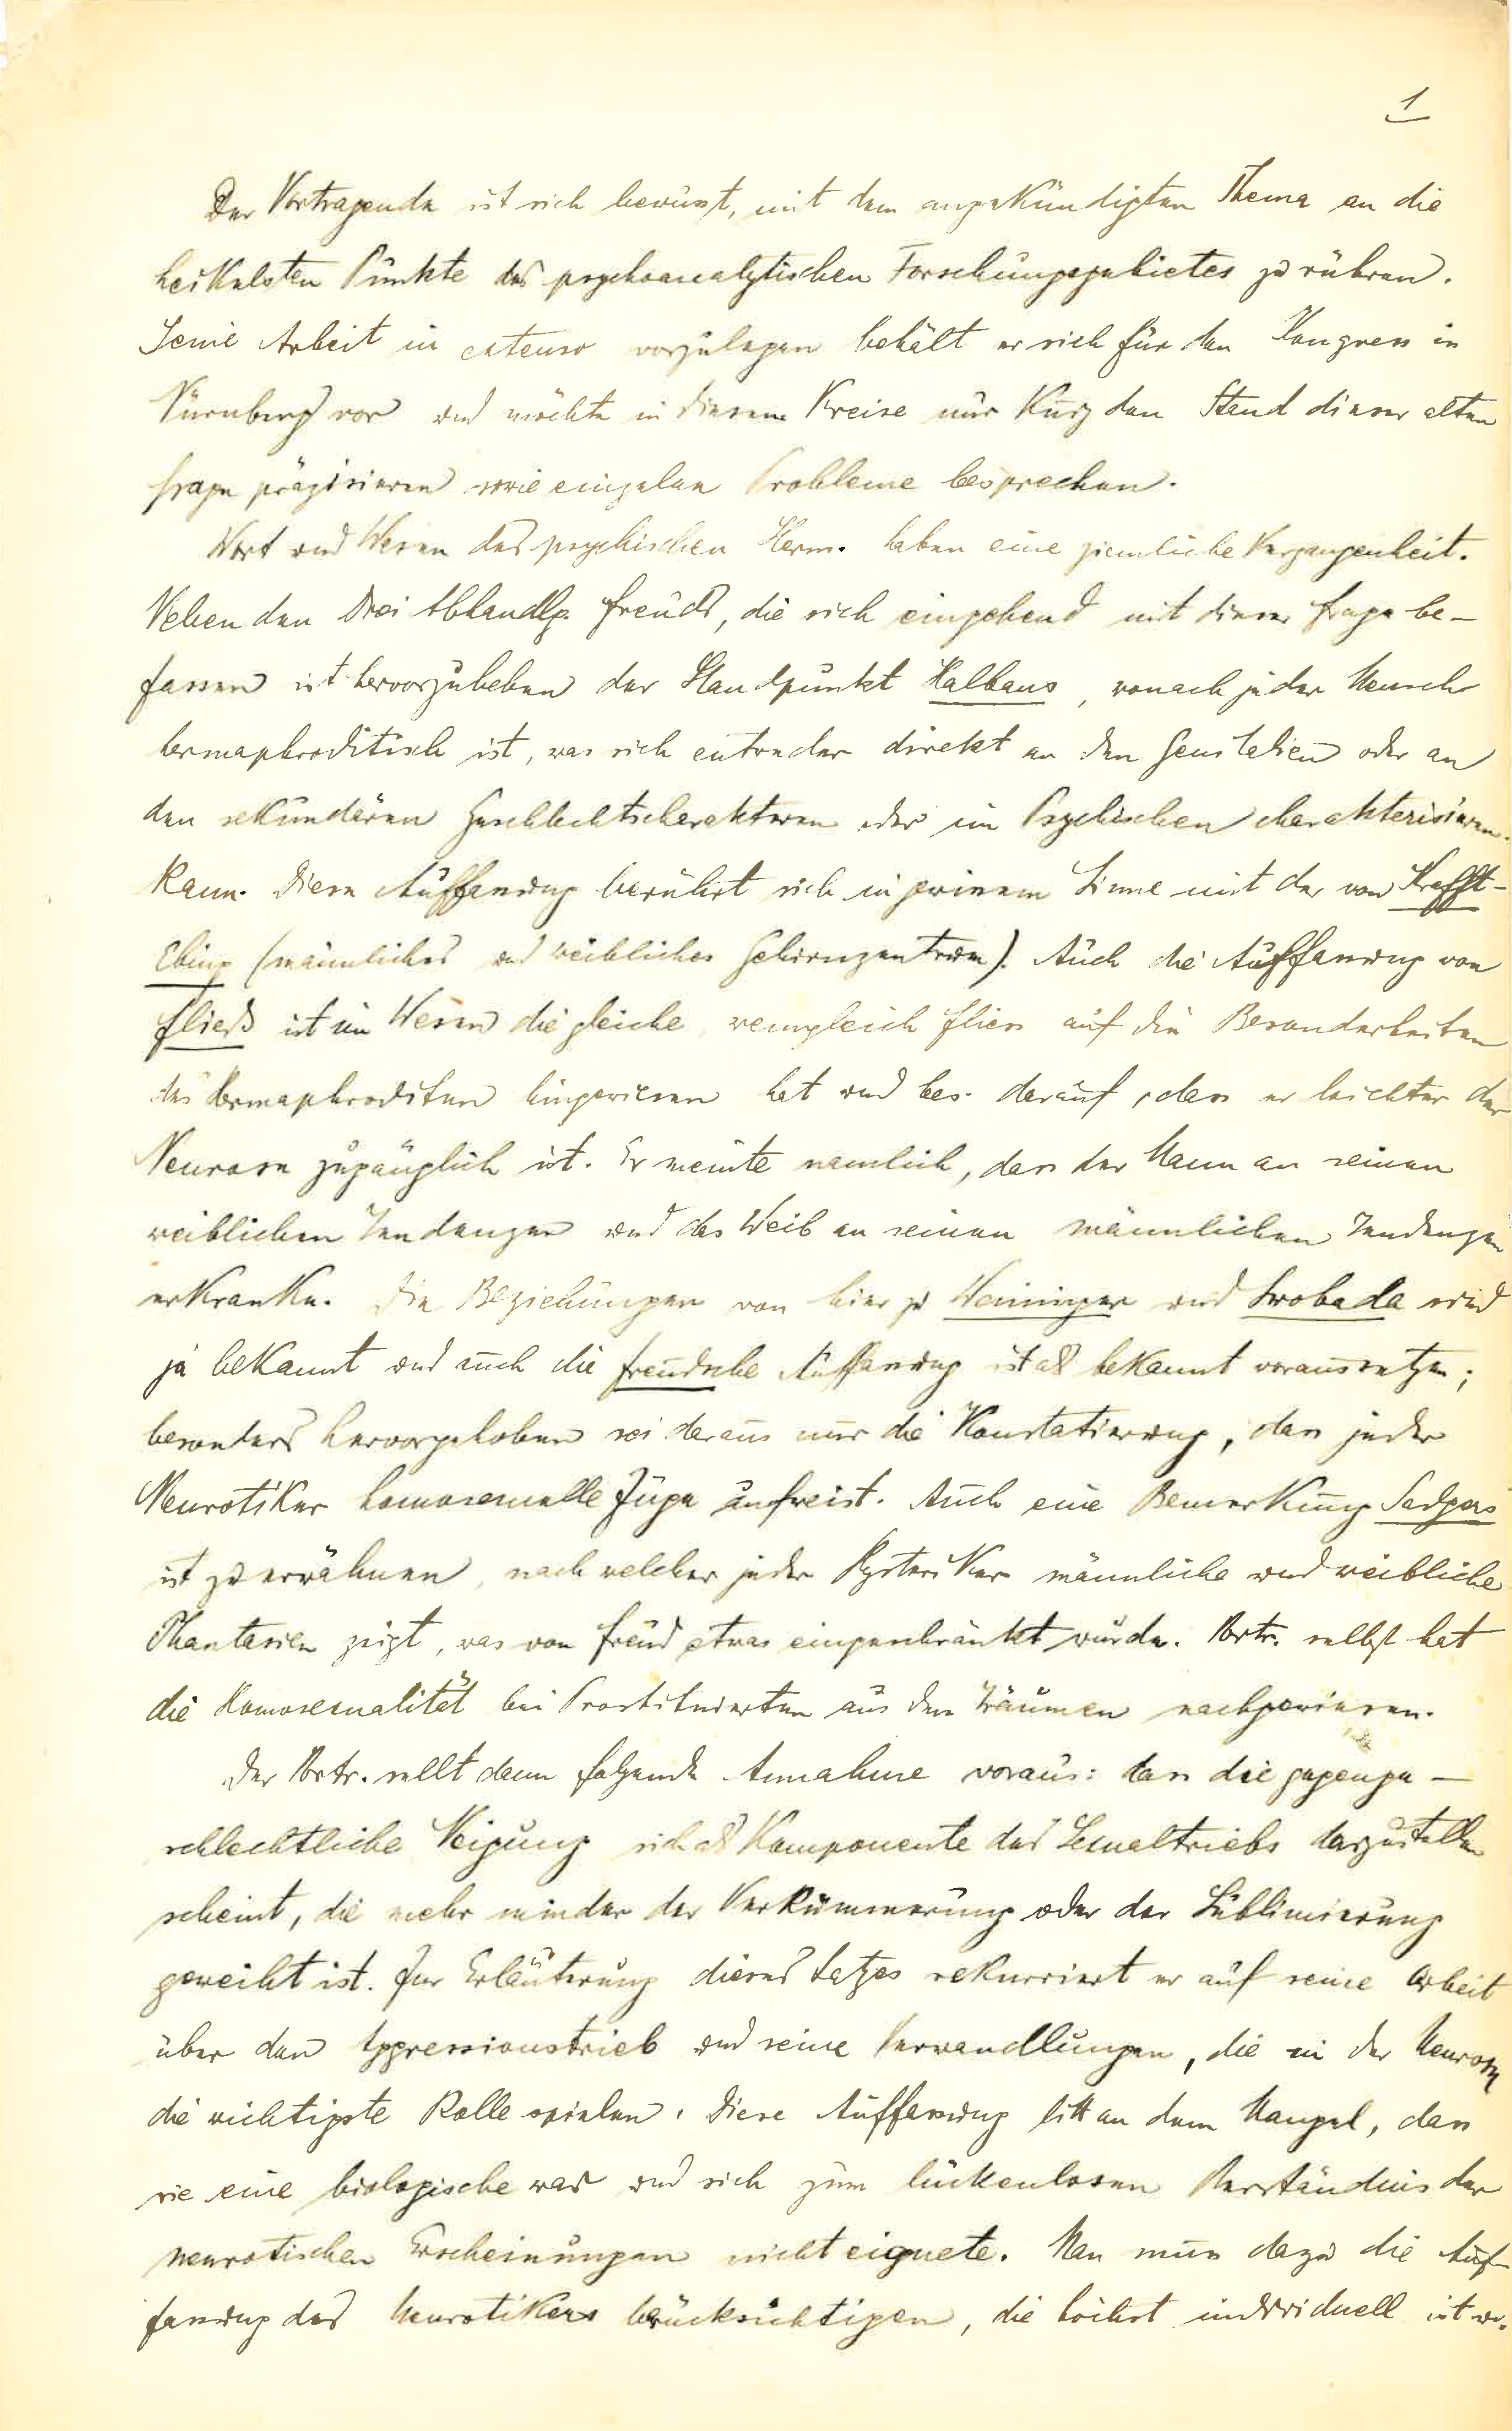 1
Der Vortragende ist sich bewusst, mit dem angekündigten Thema an die
heikelsten Punkte des psychoanalytischen Forschungsgebietes zu rühren.
Seine Arbeit in extenso vorzulegen behält er sich für den Kongress in
Nürnberg vor und möchte in diesem Kreise nur kurz den Stand dieser alten
Frage präzisieren sowie einzelne Probleme besprechen.
Wort und Wesen des psychischen Herm. haben eine ziemliche Vergangenheit.
Neben den Drei Abhandlg. Freuds, die sich eingehend mit dieser Frage be-
fassen ist hervorzuheben der Standpunkt Halbans, wonach jeder Mensch
hermaphroditisch ist, was sich entweder direkt an den Genitalien oder an
den sekundären Geschlechtscharakteren oder im Psychischen charakterisieren
kann. Diese Auffassung berührt sich in gewissem Sinne mit der von Krafft-
Ebing (männliches und weibliches Gehirnzentrum). Auch die Auffassung von
Fließ ist im Wesen die gleiche, wenngleich Fliess auf die Besonderheiten
des Hermaphroditen hingewiesen hat und bes. darauf, dass er leichter der
Neurose zugänglich ist. Er meinte nämlich, dass der Mann an seinen
weiblichen Tendenzen und das Weib an seinen männlichen Tendenzen
erkranke. Die Beziehungen von hier zu Weininger und Swoboda sind
ja bekannt und auch die Freudsche Auffassung ist als bekannt vorauszusetzen;
besonders hervorgehoben sei daraus nur die Konstatierung, dass jeder
Neurotiker homosexuelle Züge aufweist. Auch eine Bemerkung Sadgers
ist zu erwähnen, nach welcher jeder Hysteriker männliche und weibliche
Phantasien zeigt, was von Freud etwas eingeschränkt wurde. Vortr. selbst hat
die Homosexualität bei Prostituierten aus den Träumen nachgewiesen.
Der Vortr. stellt dann folgende Annahme voraus: dass die gegenge-
schlechtliche Neigung sich als Komponente des Sexualtriebs darzustellen
scheint, die mehr minder der Verkümmerung oder der Sublimierung
geweiht ist. Zur Erläuterung dieses Satzes rekurriert er auf seine Arbeit
über den Aggressionstrieb und seine Verwandlungen, die in der Neurose
die wichtigste Rolle spielen. Diese Auffassung litt an dem Mangel, dass
sie eine biologische war und sich zum lückenlosen Verständnis der
neurotischen Erscheinungen nicht eignete. Man muss dazu die Auf-
fassung des Neurotikers berücksichtigen, die höchst individuell ist